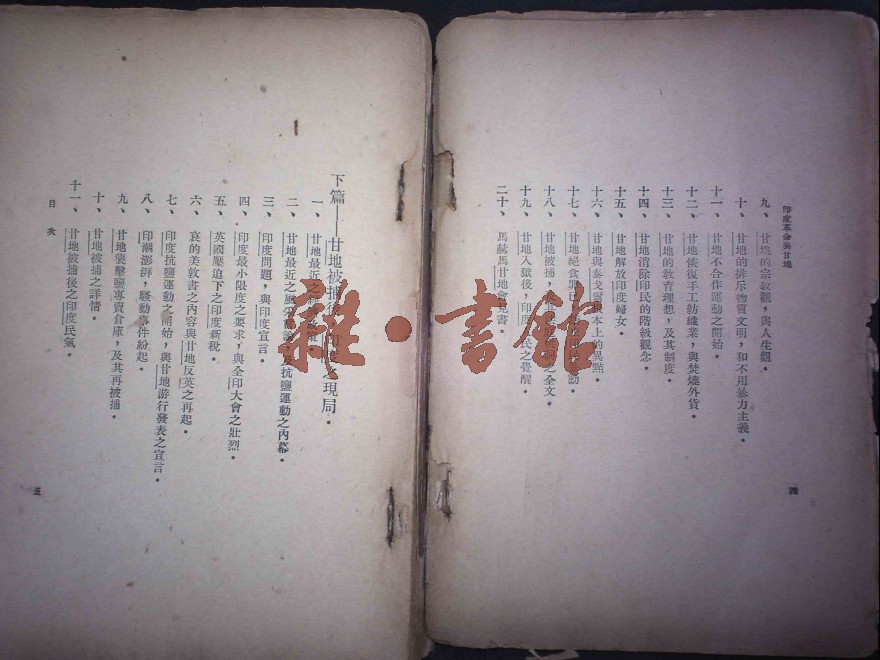 印度革命與甘地
九、甘地的宗教觀，與人生觀．
十、甘地的排斥物質文明，和不用暴力主義．
十一、甘地不合作運動之開始．
十二、甘地恢復手工紡織業，與焚燒外貨．
十三、甘地的教育理想，及其制度．
十四、甘地消除印民的階級觀念．
十五、甘地解放印度婦女．
十六、甘地與泰戈爾根本上的異點．
十七、甘地絕食
十八、甘地被捕，之全文．
十九、甘地入獄後，印度民之覺醒．
二十、馬赫馬甘地會見書．
四
下篇——甘地被捕後之現局．
一、甘地最近之
二、甘地最近之抗鹽運動之內幕．
三、印度問題，與印度宣言．
四、印度最小限度之要求，與全印大會之壯烈．
五、英國壓迫下之印度新稅．
六、哀的美敦書之內容與甘地反英之再起．
七、印度抗鹽運動之開始，與甘地游行發表之宣言．
八、印潮澎湃，騷動事件紛起．
九、甘地襲擊鹽專賣倉庫，及其再被捕．
十、甘地被捕之詳情．
十一、甘地被捕後之印度民氣．
目次
五
雜·書館